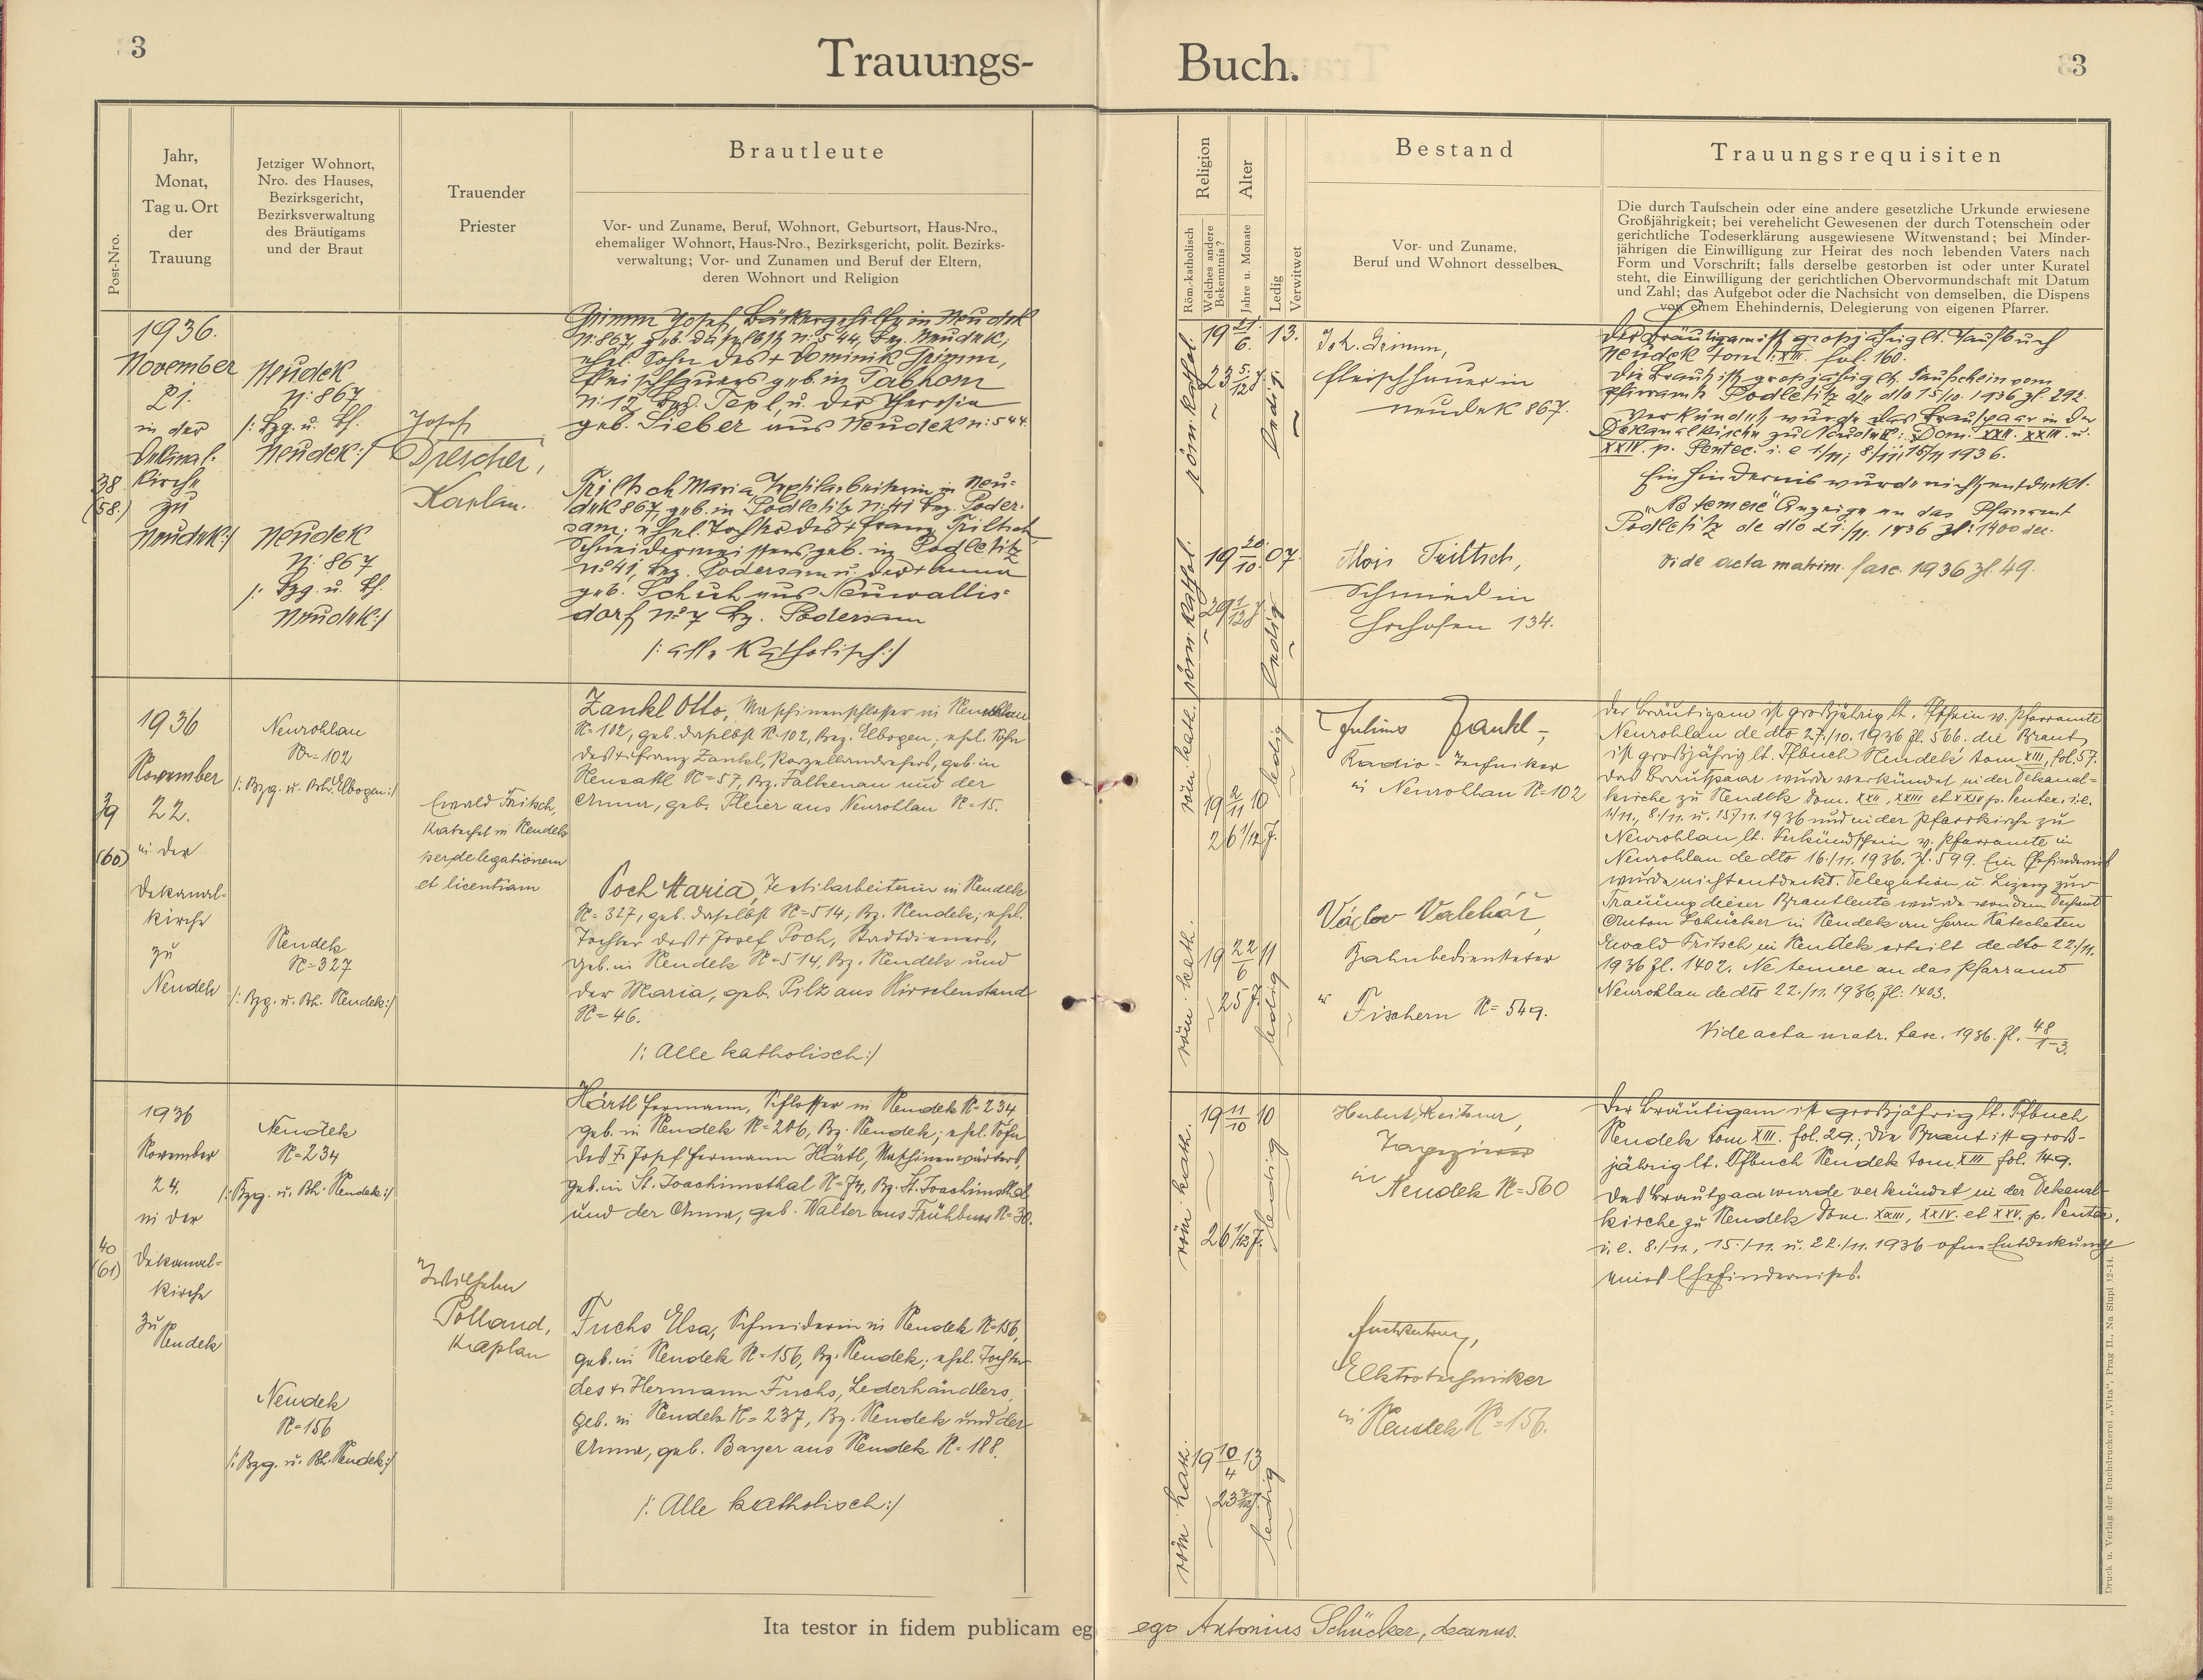 3
Trauungs-
Post-Nro.
Jahr,
Monat,
Tag u. Ort
der
Trauung
Jetziger Wohnort,
Nro. des Hauses,
Bezirksgericht,
Bezirksverwaltung
des Bräutigams
und der Braut
Trauender
Priester
Brautleute
Vor- und Zuname, Beruf, Wohnort, Geburtsort, Haus-Nro.,
ehemaliger Wohnort, Haus-Nro., Bezirksgericht, polit. Bezirks-
verwaltung; Vor- und Zunamen und Beruf der Eltern,
deren Wohnort und Religion
38
(58.)
1936.
November
21.
in der
Dekanal-
Kirche
zu
Neudek:/
Neudek
N: 867
/: Bzg. u. Bh.
Neudek:/
Neudek
N: 867
/: Bzg. u. Bh.
Neudek:/
Josef
Drescher,
Kaplan.
Grimm Josef, Bäckergehilfe in Neudek
N: 867, geb. daselbst N: 544, Bez. Neudek;
ehel. Sohn des + Dominik Grimm,
Fleischhauers geb. in
N: 12 Bez. Tepl, u. der Theresia
geb. Lieber aus Neudek n: 544.
Triltsch Maria, Textilarbeiterin in Neu-
dek 867, geb. in Podletitz N: 41 Bez. Poder-
sam; ehel. Tochter des + Franz Triltsch
Schneidermeisters, geb. in Podletitz
No 41, Bez. Podersam u. der + Anna
geb. Schuh aus Neuwallis-
dorf No 7 Bz. Podersam
/: alle Katholisch:/
39
(60)
1936
November
22.
in der
Dekanal-
kirche
zu
Neudek
Neurohlau
N= 102
/: Bzg. u. Bh. Elbogen:/
Neudek
N= 327
/: Bzg. u. Bh. Neudek:/
Ewald Fritsch,
Katechet in Neudek
per delegationem
et licentiam
Zankl Otto, Maschinenschlosser in Neurohlau
N= 102, geb. daselbst N= 102, Bez. Elbogen; ehel. Sohn
des + Franz Zankl, Porzellandrehers, geb. in
Neusattl N= 57, Bz. Falkenau und der
Anna, geb. Pleier aus Neurohlau N= 15.
Poch Maria, Textilarbeiterin in Neudek
N= 327, geb. daselbst N= 514, Bz. Neudek; ehel.
Tochter des + Josef Poch, Stadtdieners,
geb. in Neudek N= 514, Bz. Neudek und
der Maria, geb. Pilz aus Hirschenstand
N= 46.
/: Alle katholisch:/
40
(61)
1936
November
24.
in der
Dekanal-
kirche
zu
Neudek
Neudek
N= 234
/: Bzg. u. Bh. Neudek:/
Neudek
N= 156
/: Bzg. u. Bh. Neudek:/
Wilhelm
Polland,
Kaplan
Härtl Hermann, Schlosser in Neudek N= 234
geb. in Neudek N= 206, Bz. Neudek; ehel. Sohn
des + Josef Hermann Härtl, Maschinenwärters,
geb. in St. Joachimsthal N= 74, Bz. St. Joachimsthal
und der Anna, geb. Walter aus Frühbuss N= 30.
Fuchs Elsa, Schneiderin in Neudek N= 156,
geb. in Neudek N= 156, Bz. Neudek; ehel. Tochter
des + Hermann Fuchs, Lederhändlers,
geb. in Neudek N= 237, Bz. Neudek und der
Anna, geb. Bayer aus Neudek N= 188.
/: Alle katholisch:/
Ita testor in fidem publicam eg
Buch.
3
Religion
Röm.-katholisch
Welches andere
Bekenntnis?
Alter
Jahre u. Monate
Ledig
Verwitwet
Bestand
Vor- und Zuname,
Beruf und Wohnort desselben
Trauungsrequisiten
Die durch Taufschein oder eine andere gesetzliche Urkunde erwiesene
Großjährigkeit; bei verehelicht Gewesenen der durch Totenschein oder
gerichtliche Todeserklärung ausgewiesene Witwenstand; bei Minder-
jährigen die Einwilligung zur Heirat des noch lebenden Vaters nach
Form und Vorschrift; falls derselbe gestorben ist oder unter Kuratel
steht, die Einwilligung der gerichtlichen Obervormundschaft mit Datum
und Zahl; das Aufgebot oder die Nachsicht von demselben, die Dispens
von einem Ehehindernis, Delegierung von eigenen Pfarrer.
röm. kathol.
19 21/6. 13.
23 5/12 J.
ledig.
röm. kathol.
19 20/10. 07.
29 1/12 J.
ledig
Joh. Grimm,
Fleischhauer in
Neudek 867.
Alois Triltsch,
Schmied in
Horhosen 134.
Der Bräutigam ist großjährig lt. Taufbuch
Neudek tom: XIII. fol. 160.
Die Braut ist großjährig lt. Taufschein vom
Pfarramt Podletitz de dto 15./10. 1936 zl. 292.
Verkündet wurde das Brautpaar in der
Dekanalkirche zu Neudek: Dom. XXII. XXIII. u.
XXIV. p. Pentec. i. e 1/11; 8/11; 15/11 1936.
Ein Hindernis wurde nicht entdeckt.
"Ne temere" Anzeige an das Pfarramt
Podletitz de dto 21./11. 1936 zl: 1400 dec.
Vide acta matrim. fasc. 1936 zl. 49.
röm. kath.
19 2/11 10
26 1/12 J.
ledig
röm. kath.
19 22/6 11
25 J.
ledig
Julius Zankl,
Radio-Techniker
in Neurohlau N= 102
Václav Valchář,
Bahnbediensteter
in Fischern N= 549.
Der Bräutigam ist großjährig lt. Tfschein v. Pfarramte
Neurohlau de dto 27./10. 1936 Zl. 566. die Braut
ist großjährig lt. Tfbuch Neudek tom XIII, fol. 57.
Das Brautpaar wurde verkündet in der Dekanal-
kirche zu Neudek Dom. XXII, XXIII et XXIV p. Pentec. i.e.
1./11., 8./11. u. 15./11. 1936 und in der Pfarrkirche zu
Neurohlau lt. Verkündschein v. Pfarramte in
Neurohlau de dto 16./11. 1936. Zl. 599. Ein Ehehindernis
wurde nicht entdeckt. Delegation u. Lizenz zur
Trauung dieser Brautleute wurde von dem Dechant
Anton Schücker in Neudek an Herrn Katecheten
Ewald Fritsch in Neudek erteilt de dto 22./11.
1936 Zl. 1402. Ne temere an das Pfarramt
Neurohlau de dto 22./11. 1936, Zl: 1403.
Vide acta matr. fasc. 1936. Zl. 48/1-3.
röm. kath.
19 11/10 10
26 1/12 J.
ledig
röm. kath.
19 10/4 13
23 7/12 J.
ledig
Herbert Reitzner,
Tapezierer
in
Neudek N= 560
Elektrotechniker
in Neudek N= 156.
Der Bräutigam ist großjährig lt. Tfbuch
Neudek tom XIII. fol. 29.; die Braut ist groß-
jährig lt. Tfbuch Neudek tom. XIII fol. 149.
Das Brautpaar wurde verkündet in der Dekanal-
kirche zu Neudek Dom. XXIII, XXIV. et XXV. p. Pentec.
i. e. 8./11., 15./11. u. 22./11. 1936 ohne Entdeckung
eines Ehehindernisses.
ego Antonius Schücker, decanus.
Druck u. Verlag der Buchdruckerei „Vita“, Prag II., Na Slupi 12-14.